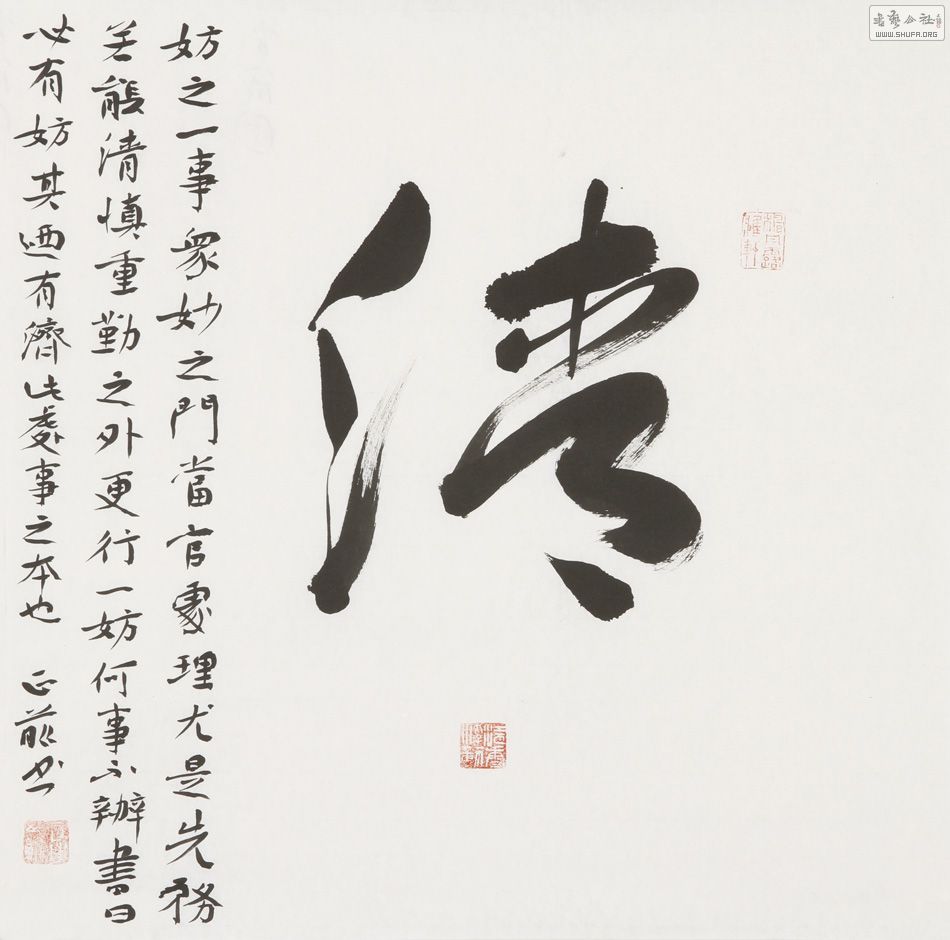 清
妨之一事衆妙之門當官處理尤是先務
若能清慎重勤之外更行一妨何事不辦書曰
必有妨其迺有濟此處事之本也
正书
書藝公社
WWW.SHUFA.ORG